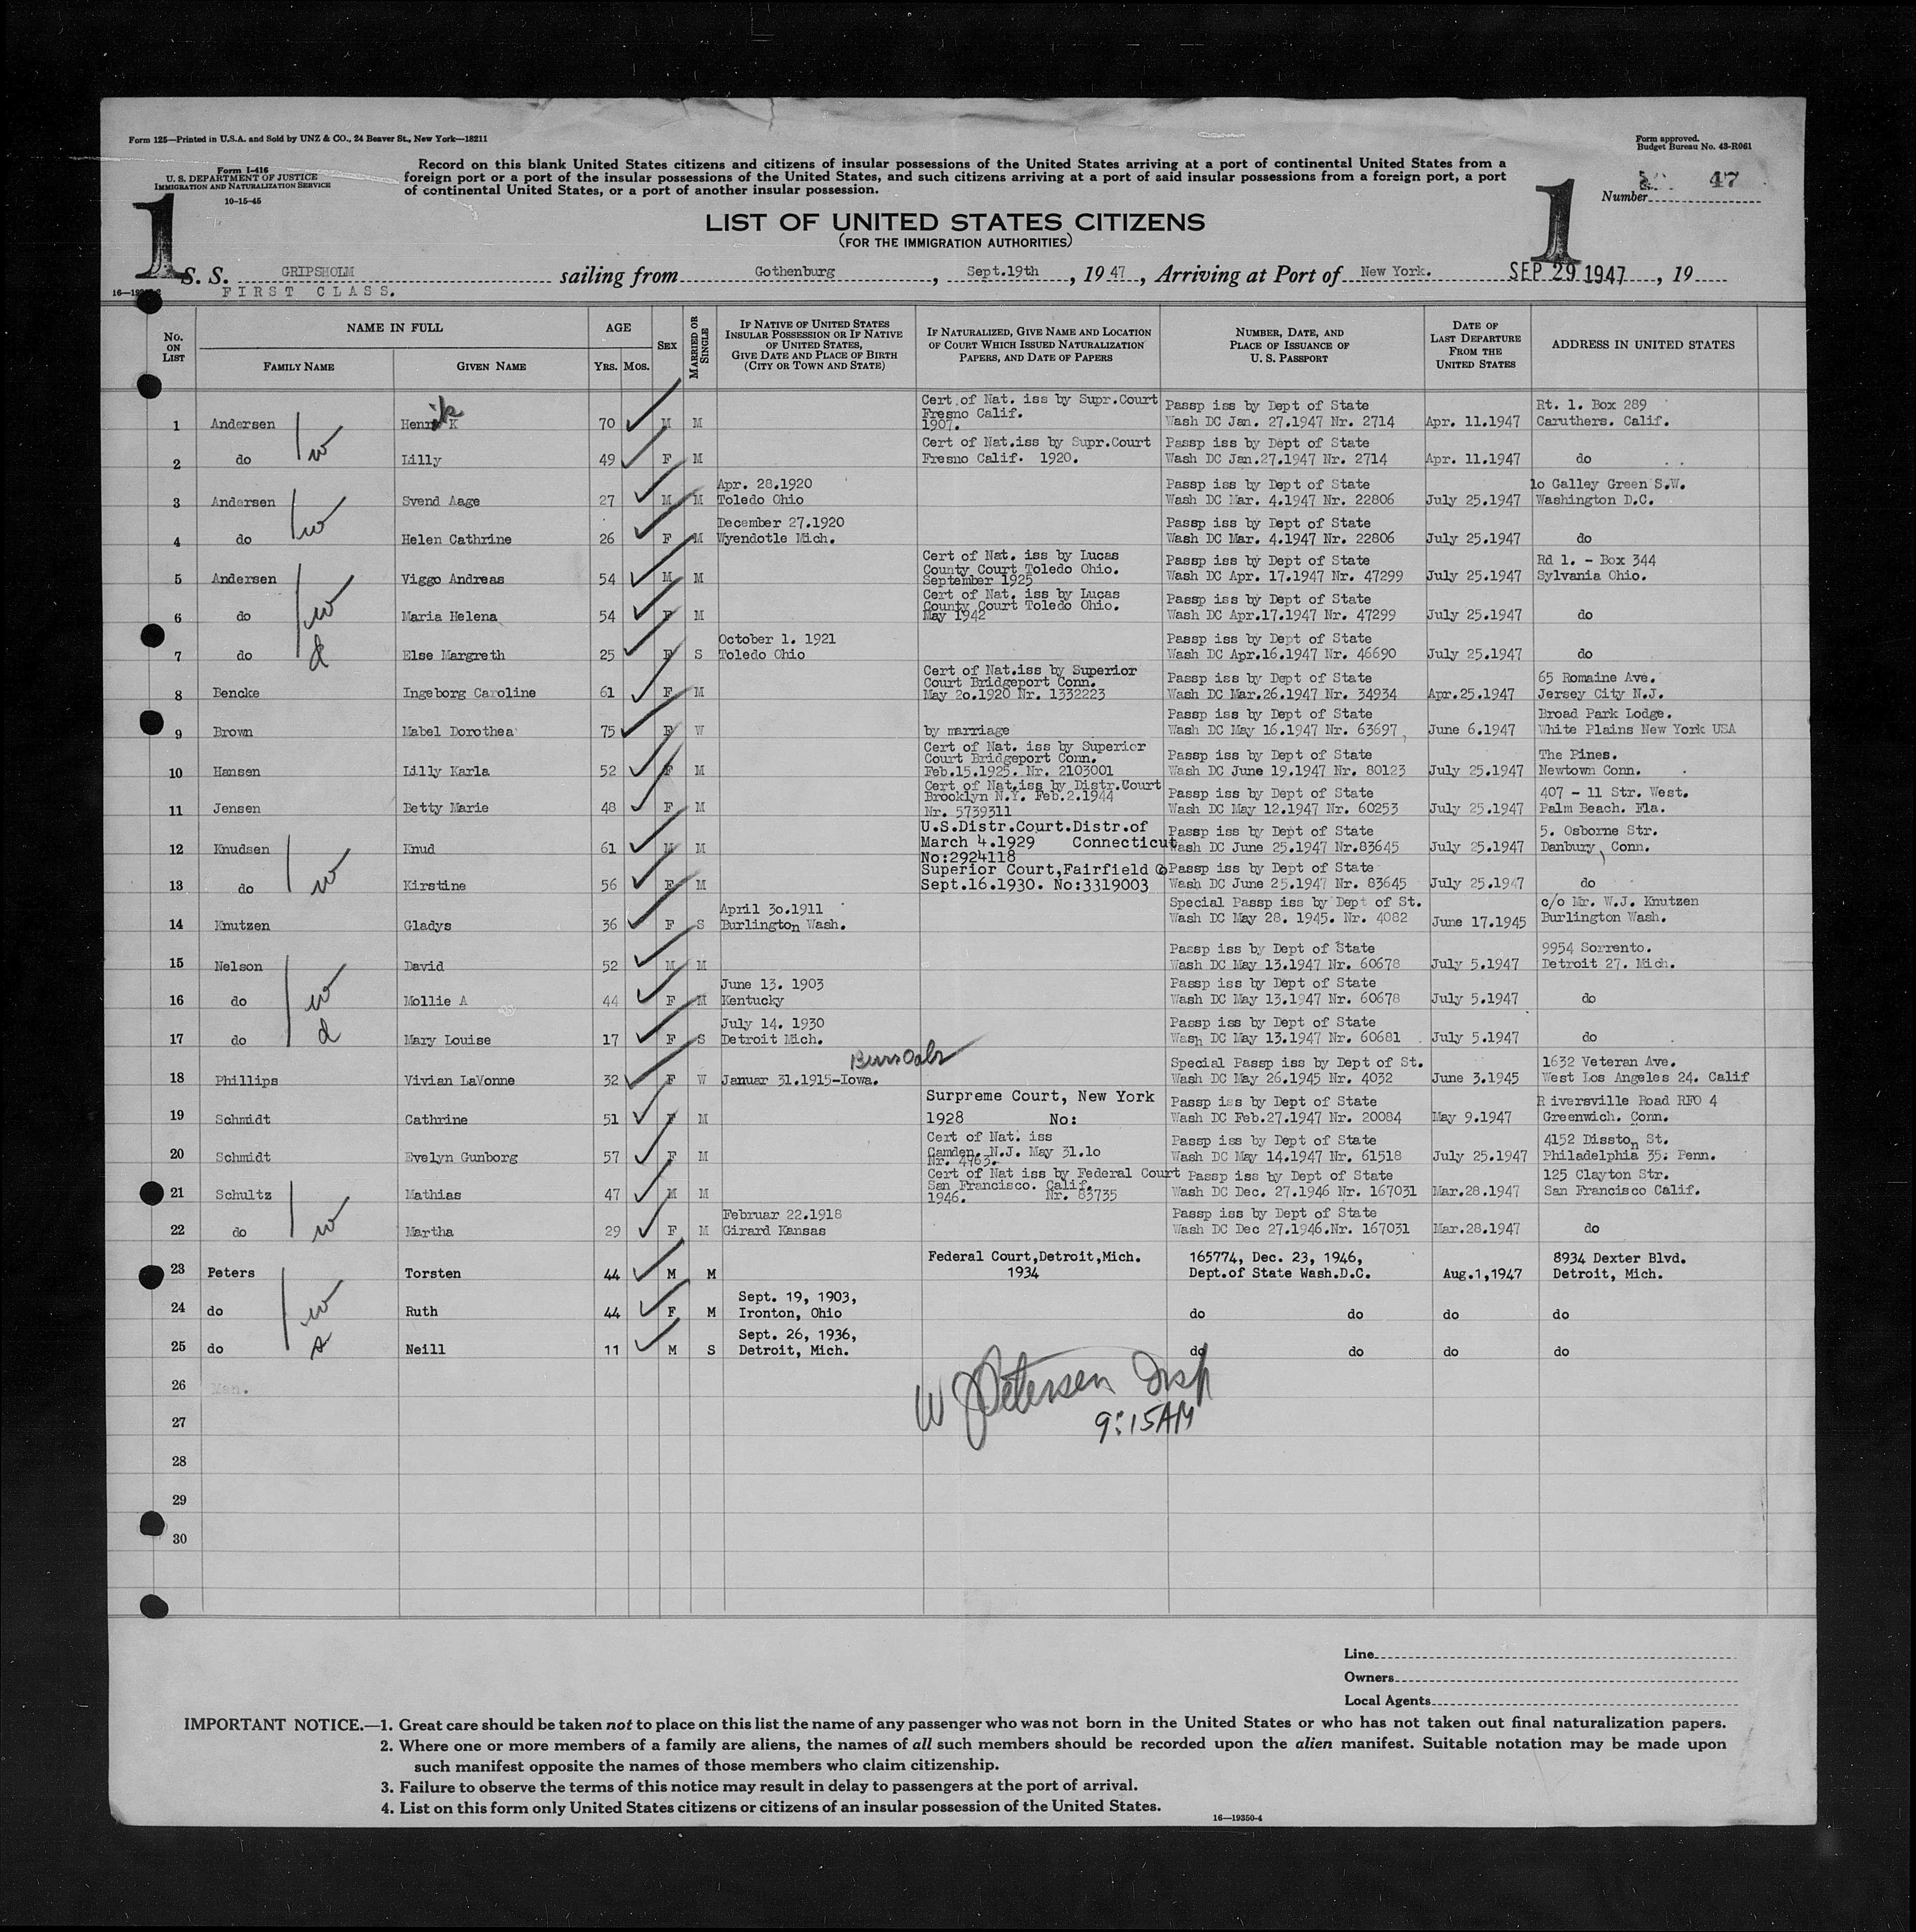 Form 125—Printed in U.S.A. and Sold by UNZ & CO., 24 Beaver St., New York—18211
Form approved.
Budget Bureau No. 43-R061
Form I-416
U. S. DEPARTMENT OF JUSTICE
IMMIGRATION AND NATURALIZATION SERVICE
10-15-45
Record on this blank United States citizens and citizens of insular possessions of the United States arriving at a port of continental United States from a
foreign port or a port of the insular possessions of the United States, and such citizens arriving at a port of said insular possessions from a foreign port, a port
of continental United States, or a port of another insular possession.
1
1
Number 47
LIST OF UNITED STATES CITIZENS
(FOR THE IMMIGRATION AUTHORITIES)
S. S. GRIPSHOLM sailing from Gothenburg, Sept.19th, 1947, Arriving at Port of New York. SEP 29 1947, 19
FIRST CLASS.
No. ON LIST
NAME IN FULL
FAMILY NAME
GIVEN NAME
AGE
YRS. MOS.
SEX
MARRIED OR SINGLE
IF NATIVE OF UNITED STATES
INSULAR POSSESSION OR IF NATIVE
OF UNITED STATES,
GIVE DATE AND PLACE OF BIRTH
(CITY OR TOWN AND STATE)
IF NATURALIZED, GIVE NAME AND LOCATION
OF COURT WHICH ISSUED NATURALIZATION
PAPERS, AND DATE OF PAPERS
NUMBER, DATE, AND
PLACE OF ISSUANCE OF
U. S. PASSPORT
DATE OF
LAST DEPARTURE
FROM THE
UNITED STATES
ADDRESS IN UNITED STATES
Cert.of Nat. iss by Supr.Court Passp iss by Dept of State Rt. 1. Box 289
Fresno Calif.
1 Andersen Henrik K 70 M M 1907. Wash DC Jan. 27.1947 Nr. 2714 Apr. 11.1947 Caruthers. Calif.
w
Cert of Nat.iss by Supr.Court Passp iss by Dept of State
2 do Lilly 49 F M Fresno Calif. 1920. Wash DC Jan.27.1947 Nr. 2714 Apr. 11.1947 do
Apr. 28.1920 Passp iss by Dept of State 1o Galley Green S.W.
3 Andersen Svend Aage 27 M M Toledo Ohio Wash DC Mar. 4.1947 Nr. 22806 July 25.1947 Washington D.C.
w
December 27.1920 Passp iss by Dept of State
4 do Helen Cathrine 26 F M Wyendotle Mich. Wash DC Mar. 4.1947 Nr. 22806 July 25.1947 do
Cert of Nat. iss by Lucas Passp iss by Dept of State Rd 1. - Box 344
County Court Toledo Ohio.
5 Andersen Viggo Andreas 54 M M September 1925 Wash DC Apr. 17.1947 Nr. 47299 July 25.1947 Sylvania Ohio.
w
Cert of Nat. iss by Lucas Passp iss by Dept of State
County Court Toledo Ohio.
6 do Maria Helena 54 F M May 1942 Wash DC Apr.17.1947 Nr. 47299 July 25.1947 do
October 1. 1921 Passp iss by Dept of State
7 do d Else Margreth 25 F S Toledo Ohio Wash DC Apr.16.1947 Nr. 46690 July 25.1947 do
Cert of Nat.iss by Superior Passp iss by Dept of State 65 Romaine Ave.
Court Bridgeport Conn.
8 Bencke Ingeborg Caroline 61 F M May 2o.1920 Nr. 1332223 Wash DC Mar.26.1947 Nr. 34934 Apr.25.1947 Jersey City N.J.
Passp iss by Dept of State Broad Park Lodge.
9 Brown Mabel Dorothea 75 F W by marriage Wash DC May 16.1947 Nr. 63697 June 6.1947 White Plains New York USA
Cert of Nat. iss by Superior Passp iss by Dept of State The Pines.
Court Bridgeport Conn.
10 Hansen Lilly Karla 52 F M Feb.15.1925. Nr. 2103001 Wash DC June 19.1947 Nr. 80123 July 25.1947 Newtown Conn.
Cert of Nat.iss by Distr.Court Passp iss by Dept of State 407 - 11 Str. West.
Brooklyn N.Y. Feb.2.1944
11 Jensen Betty Marie 48 F M Nr. 5739311 Wash DC May 12.1947 Nr. 60253 July 25.1947 Palm Beach. Fla.
U.S.Distr.Court.Distr.of Passp iss by Dept of State 5. Osborne Str.
12 Knudsen Knud 61 M M March 4.1929 Connecticut Wash DC June 25.1947 Nr.83645 July 25.1947 Danbury, Conn.
No:2924118
w
Superior Court,Fairfield Co Passp iss by Dept of State
13 do Kirstine 56 F M Sept.16.1930. No:3319003 Wash DC June 25.1947 Nr. 83645 July 25.1947 do
April 3o.1911 Special Passp iss by Dept of St. c/o Mr. W.J. Knutzen
14 Knutzen Gladys 36 F S Burlington Wash. Wash DC May 28. 1945. Nr. 4082 June 17.1945 Burlington Wash.
Passp iss by Dept of State 9954 Sorrento.
15 Nelson David 52 M M Wash DC May 13.1947 Nr. 60678 July 5.1947 Detroit 27. Mich.
w
June 13. 1903 Passp iss by Dept of State
16 do Mollie A 44 F M Kentucky Wash DC May 13.1947 Nr. 60678 July 5.1947 do
July 14. 1930 Passp iss by Dept of State
17 do d Mary Louise 17 F S Detroit Mich. Wash DC May 13.1947 Nr. 60681 July 5.1947 do
Special Passp iss by Dept of St. 1632 Veteran Ave.
18 Phillips Vivian LaVonne 32 F W Januar 31.1915-Iowa. Wash DC May 26.1945 Nr. 4032 June 3.1945 West Los Angeles 24. Calif
Surpreme Court, New York Passp iss by Dept of State R iversville Road RFO 4
19 Schmidt Cathrine 51 F M 1928 No: Wash DC Feb.27.1947 Nr. 20084 May 9.1947 Greenwich. Conn.
Cert of Nat. iss Passp iss by Dept of State 4152 Disston St.
Camden. N.J. May 31.1o
20 Schmidt Evelyn Gunborg 57 F M Nr. 4763. Wash DC May 14.1947 Nr. 61518 July 25.1947 Philadelphia 35. Penn.
Cert of Nat iss by Federal Court Passp iss by Dept of State 125 Clayton Str.
San Francisco. Calif.
21 Schultz Mathias 47 M M 1946. Nr. 83735 Wash DC Dec. 27.1946 Nr. 167031 Mar.28.1947 San Francisco Calif.
w
Februar 22.1918 Passp iss by Dept of State
22 do Martha 29 F M Girard Kansas Wash DC Dec 27.1946.Nr. 167031 Mar.28.1947 do
Federal Court,Detroit,Mich. 165774, Dec. 23, 1946, 8934 Dexter Blvd.
23 Peters Torsten 44 M M 1934 Dept.of State Wash.D.C. Aug.1,1947 Detroit, Mich.
w
Sept. 19, 1903,
24 do Ruth 44 F M Ironton, Ohio do do do do
Sept. 26, 1936,
25 do s Neill 11 M S Detroit, Mich. do do do do
26
W J Petersen Insp
27
9:15AM
28
29
30
Line
Owners
Local Agents
IMPORTANT NOTICE.—1. Great care should be taken not to place on this list the name of any passenger who was not born in the United States or who has not taken out final naturalization papers.
2. Where one or more members of a family are aliens, the names of all such members should be recorded upon the alien manifest. Suitable notation may be made upon
such manifest opposite the names of those members who claim citizenship.
3. Failure to observe the terms of this notice may result in delay to passengers at the port of arrival.
4. List on this form only United States citizens or citizens of an insular possession of the United States.
16—19350-4